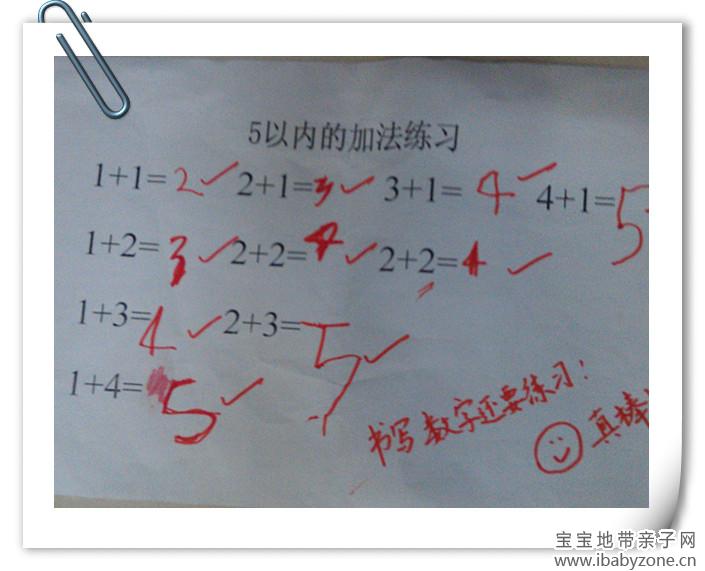 5以内的加法练习
1+1=2 ✓ 2+1=3 ✓ 3+1= 4 ✓ 4+1=5
1+2=3 ✓ 2+2=4 ✓ 2+2=4 ✓
1+3=4 ✓ 2+3=5 ✓
1+4=5 ✓
书写数字还要练习!
真棒
宝宝地带亲子网
www.ibabyzone.cn